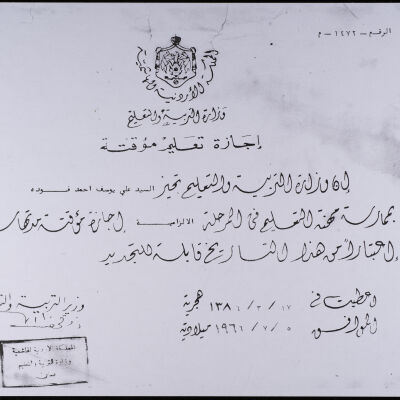 الرقم - ١٤٧٢ - م
المملكة الأردنية الهاشمية
وزارة التربية والتعليم
إجازة تعليم مؤقتة
إن وزارة التربية والتعليم تجيز السيد علي يوسف احمد فوده
بممارسة مهنة التعليم في المرحلة الالزامية إجازة مؤقتة مدتها
إعتباراً من هذا التاريخ قابلة للتجديد
اعطيت في ١٧ / ٢ / ١٣٨١ هجرية
الموافق ٥ / ٧ / ١٩٦١ ميلادية
وزير التربية والتعليم
المملكة الاردنية الهاشمية
وزارة التربية والتعليم